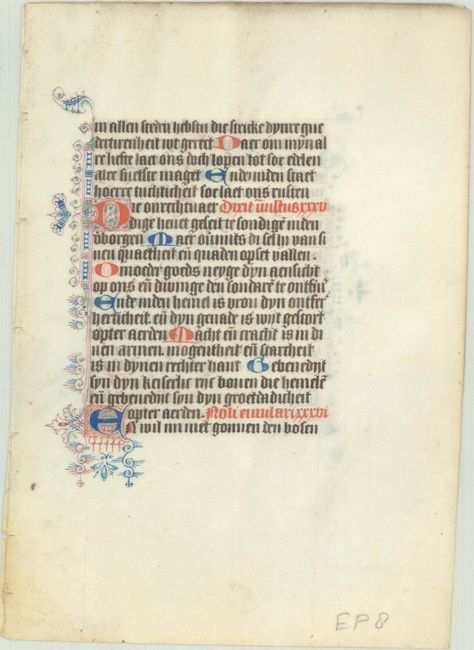 in allen steden hebstu die stricke dynre gue
dertierenheit wt gerect Daer om myn al
re liefste laet ons dich lopen tot soe edelen
alre suetser maget Ende inden staet
hoerre tuchticheit soe laet ons rusten
Die onrechtuaer Dixit iniustus xxxv
dige heuet geseit te sondigen inden
v̄borgen Maer v̄miits di selfs van si
nen quaetheit en̄ quaden opset vallen.
O moeder goeds neyge dyn aensicht
op ons en̄ dwinge den sondare te ontf
Ende inden hemel is vrou dyn ontfer
herticheit. en̄ dyn genade is wyt gestort
opter aerden Macht en̄ cracht is in di
nen armen. mogentheit en̄ starcheit
is in dynen rechter hant Gebenedyt
syn dyn keiserlic rijc bouen die hemele
en̄ gebenedyt syn dyn groetdadicheit
opter aerden. Noli emulari xxxvi
En wil nu met gonnen den bosen
EP8